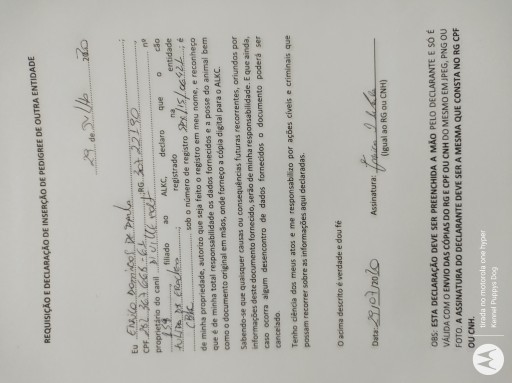 REQUISIÇÃO E DECLARAÇÃO DE INSERÇÃO DE PEDIGREE DE OUTRA ENTIDADE
29 de Julho 2020
Eu
CPF RG nº
proprietário do canil o cão
filiado ao ALKC, declaro que
registrado na entidade
sob o número de registro é
de minha propriedade, autorizo que seja feito o registro em meu nome, e reconheço
que é de minha total responsabilidade os dados fornecidos e a posse do animal bem
como o documento original em mãos, onde forneço a cópia digital para o ALKC.
Sabendo-se que quaisquer causas ou consequências futuras recorrentes, oriundos por
informações deste documento fornecido, serão de minha responsabilidade. E que ainda,
caso ocorra algum desencontro de dados fornecidos o documento poderá ser
cancelado.
Tenho ciência dos meus atos e me responsabilizo por ações cíveis e criminais que
possam recorrer sobre as informações aqui declaradas.
O acima descrito é verdade e dou fé
Data: 29/07/2020 Assinatura:
(Igual ao RG ou CNH)
OBS: ESTA DECLARAÇÃO DEVE SER PREENCHIDA A MÃO PELO DECLARANTE E SÓ É
VÁLIDA COM O ENVIO DAS CÓPIAS DO RG E CPF OU CNH DO MESMO EM JPEG, PNG OU
FOTO. A ASSINATURA DO DECLARANTE DEVE SER A MESMA QUE CONSTA NO RG CPF
OU CNH.
tirada no motorola one hyper
Kennel Puppys Dog